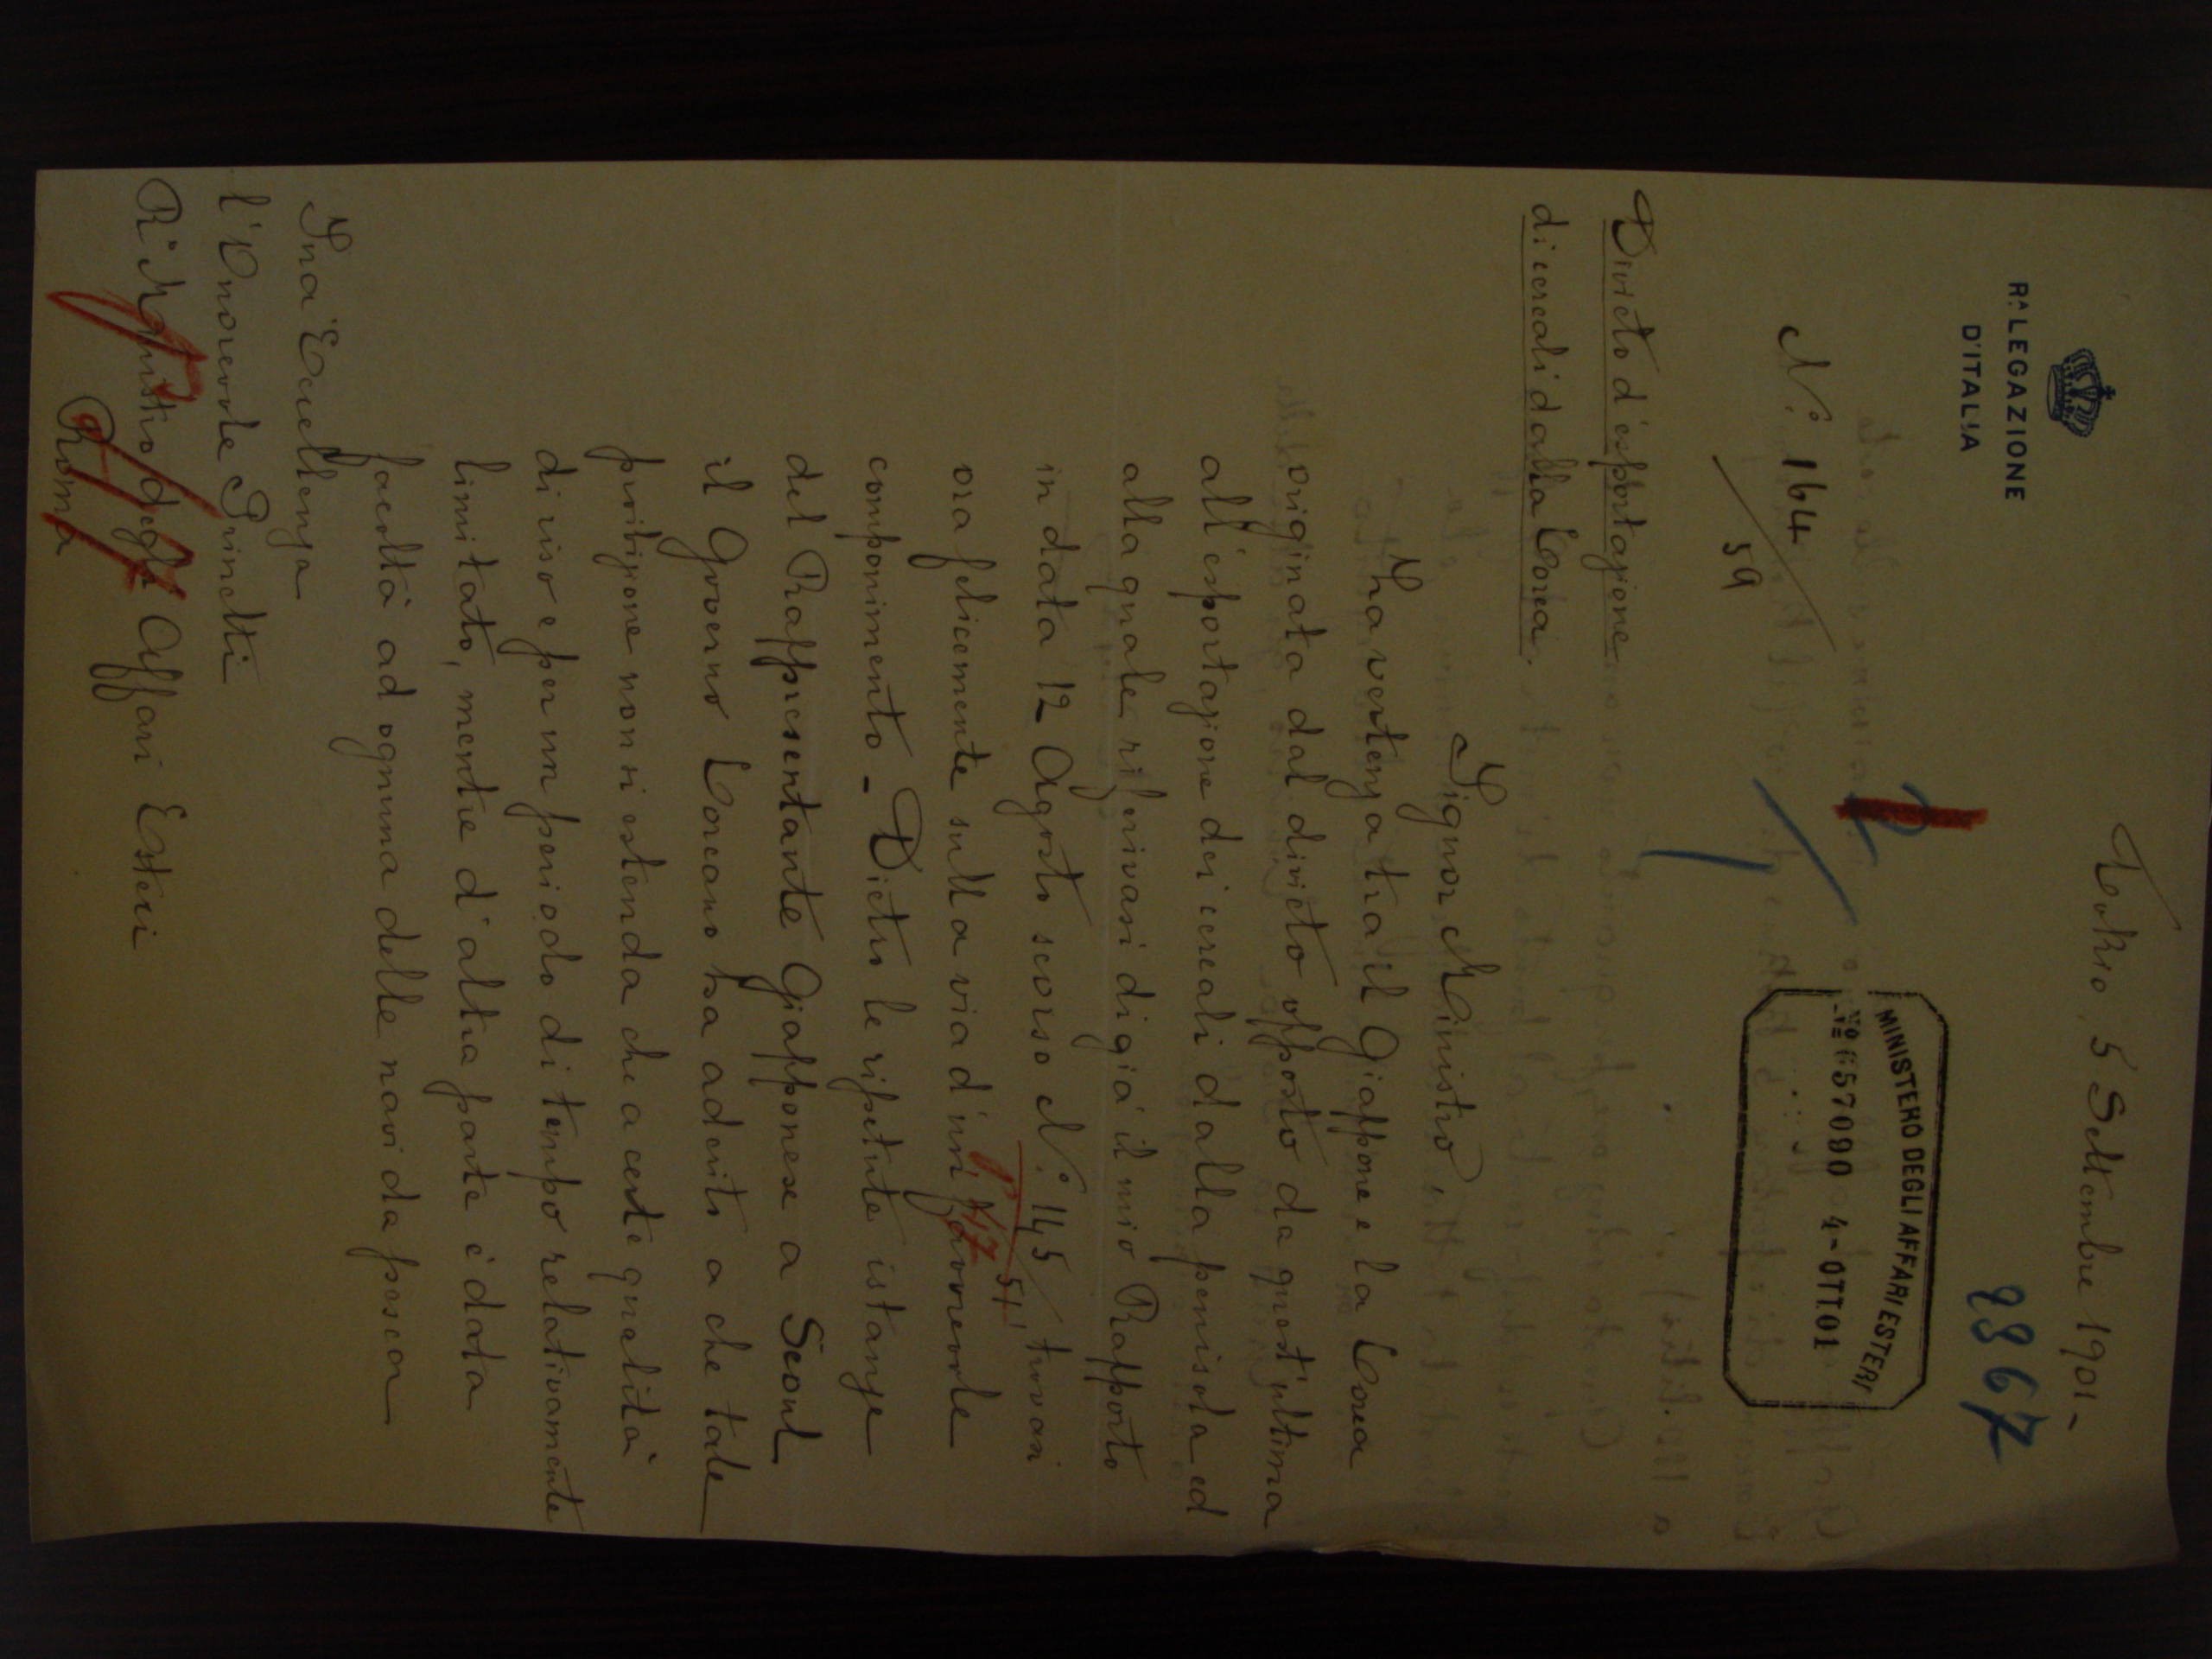 Rᴬ LEGAZIONE
D'ITALIA
Tokio, 5 Settembre 1901-
2867
N.° 164
59
MINISTERO DEGLI AFFARI ESTERI
Nº 657090 4-OTT.01
Divieto d'esportazione
di cereali dalla Corea.
Signor Ministro,
La vertenza tra il Giappone e la Corea
originata dal divieto opposto da quest'ultima
all'esportazione dei cereali dalla penisola ed
alla quale riferivasi digià il mio Rapporto
in data 12 Agosto scorso N.° 145/51, trovasi
ora felicemente sulla via d'un favorevole
componimento - Dietro le ripetute istanze
del Rappresentante Giapponese a Seoul
il Governo Coreano ha aderito a che tale
proibizione non si estenda che a certe qualità
di riso e per un periodo di tempo relativamente
limitato, mentre d'altra parte è data
facoltà ad ognuna delle navi da pesca
Sua Eccellenza
l'Onorevole Prinetti
R° Ministro degli Affari Esteri
Roma